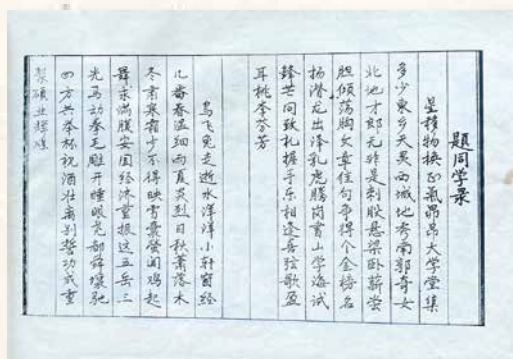 题同学录
星移物换正气昂昂大学堂集
多少东乡天灵西城地秀南郭奇女
北地才郎无非是刺股悬梁卧薪尝
胆倾荡胸文章佳句争得个金榜名
扬潜龙出泽乳虎腾岗书山学海试
锋芒问致札握手乐相逢喜弦歌盈
耳桃李芬芳
乌飞兔走逝水洋洋小轩窗经
几番春温细雨夏炎烈日秋萧落木
冬肃寒霜少不得映雪囊萤闻鸡起
舞求满腹安国经济重振这五岳三
光马动拳毛雕开睡眼完部舜壤驰
四方共举杯祝酒壮离别誓功成重
聚硕业辉煌